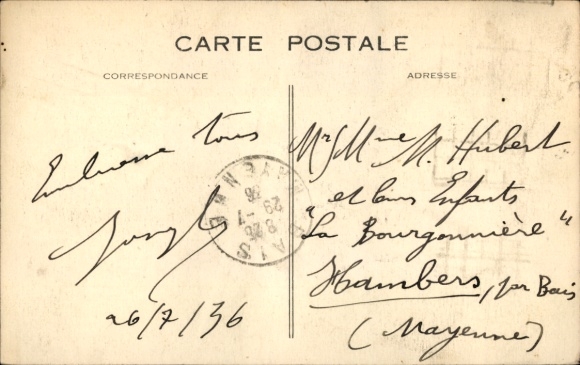 CARTE POSTALE
CORRESPONDANCE
ADRESSE
Embrasse tous
26/7/36
Mr Mme M. Hubert
et leurs Enfants
"La Bourgonnière"
Hambers, par Bais
(Mayenne)
BAIS
MAYENNE
8 28
29 -7
36